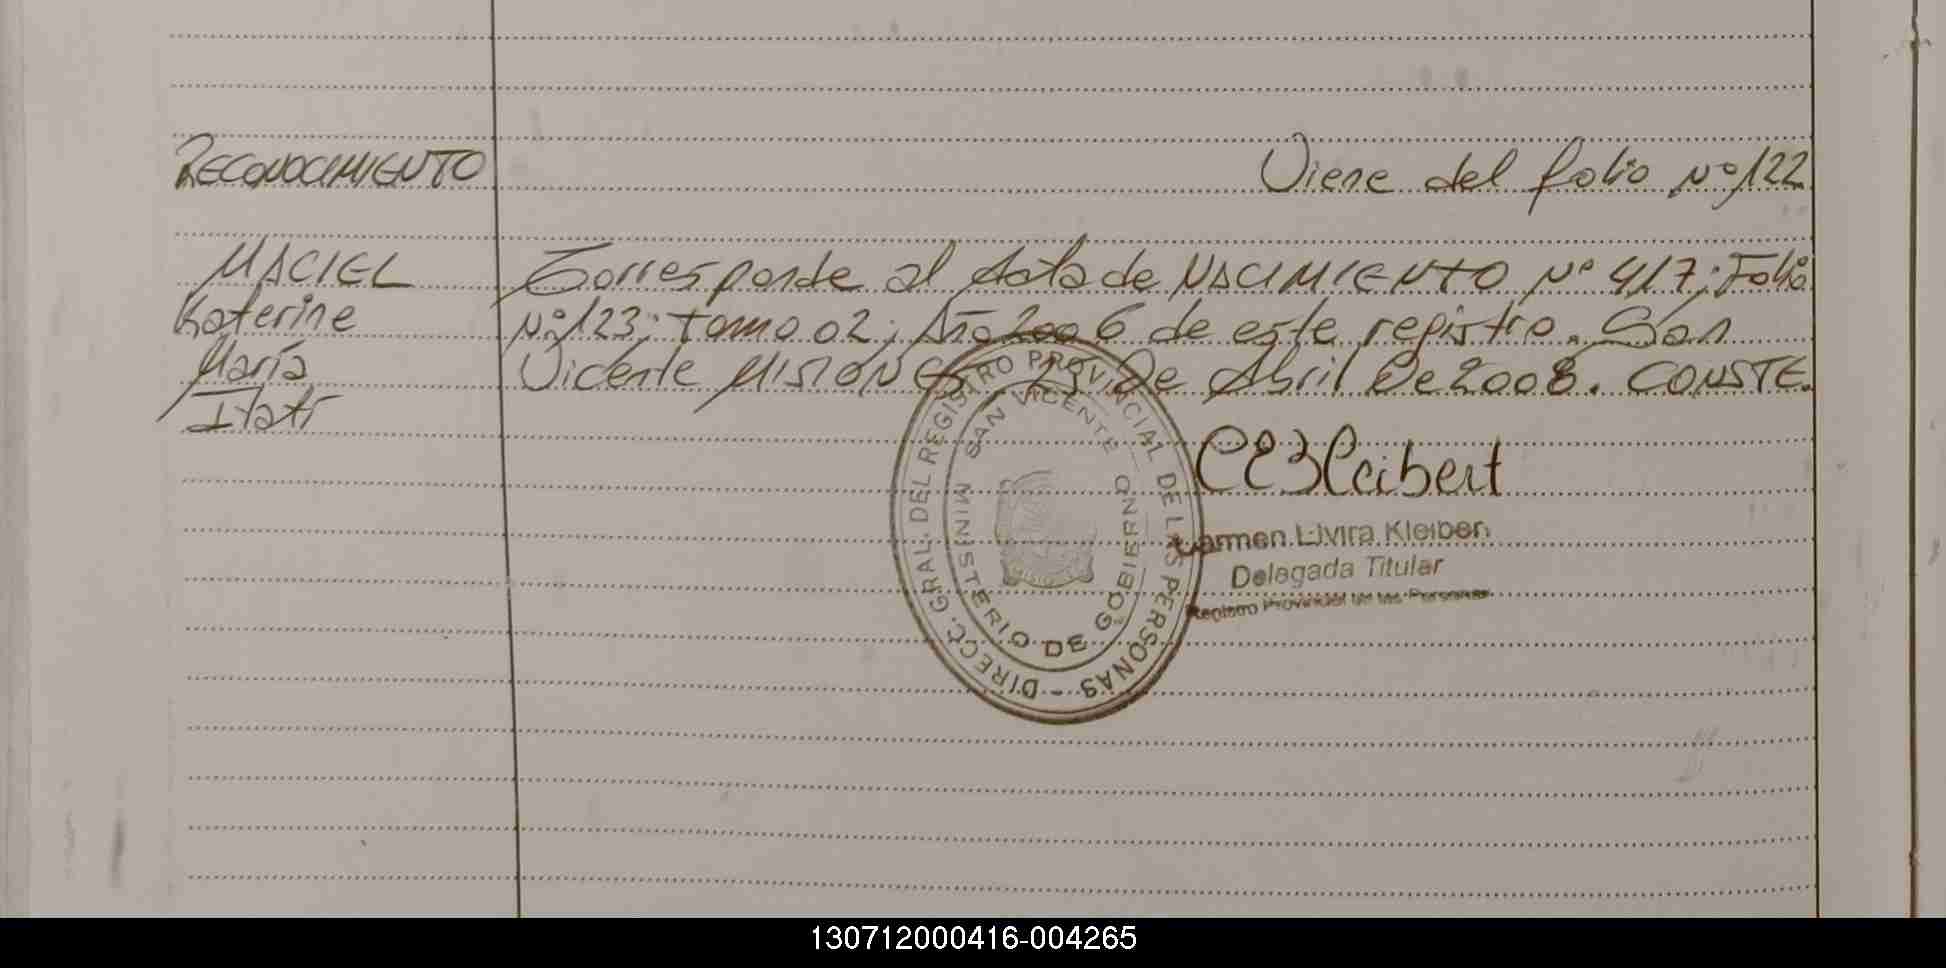 RECONOCIMIENTO
Viene del folio Nº 122
MACIEL
Katerine
María
Itatí
Corresponde al Acta de NACIMIENTO Nº 417; Folio
Nº 123; tomo 02; Año 2006 de este registro. San
Vicente MISIONES 25 De Abril De 2008. CONSTE.
DIRECC. GRAL. DEL REGISTRO PROVINCIAL DE LAS PERSONAS -
SAN VICENTE
MINISTERIO DE GOBIERNO
Carmen Elvira Kleibert
Delegada Titular
Registro Provincial de las Personas
130712000416-004265